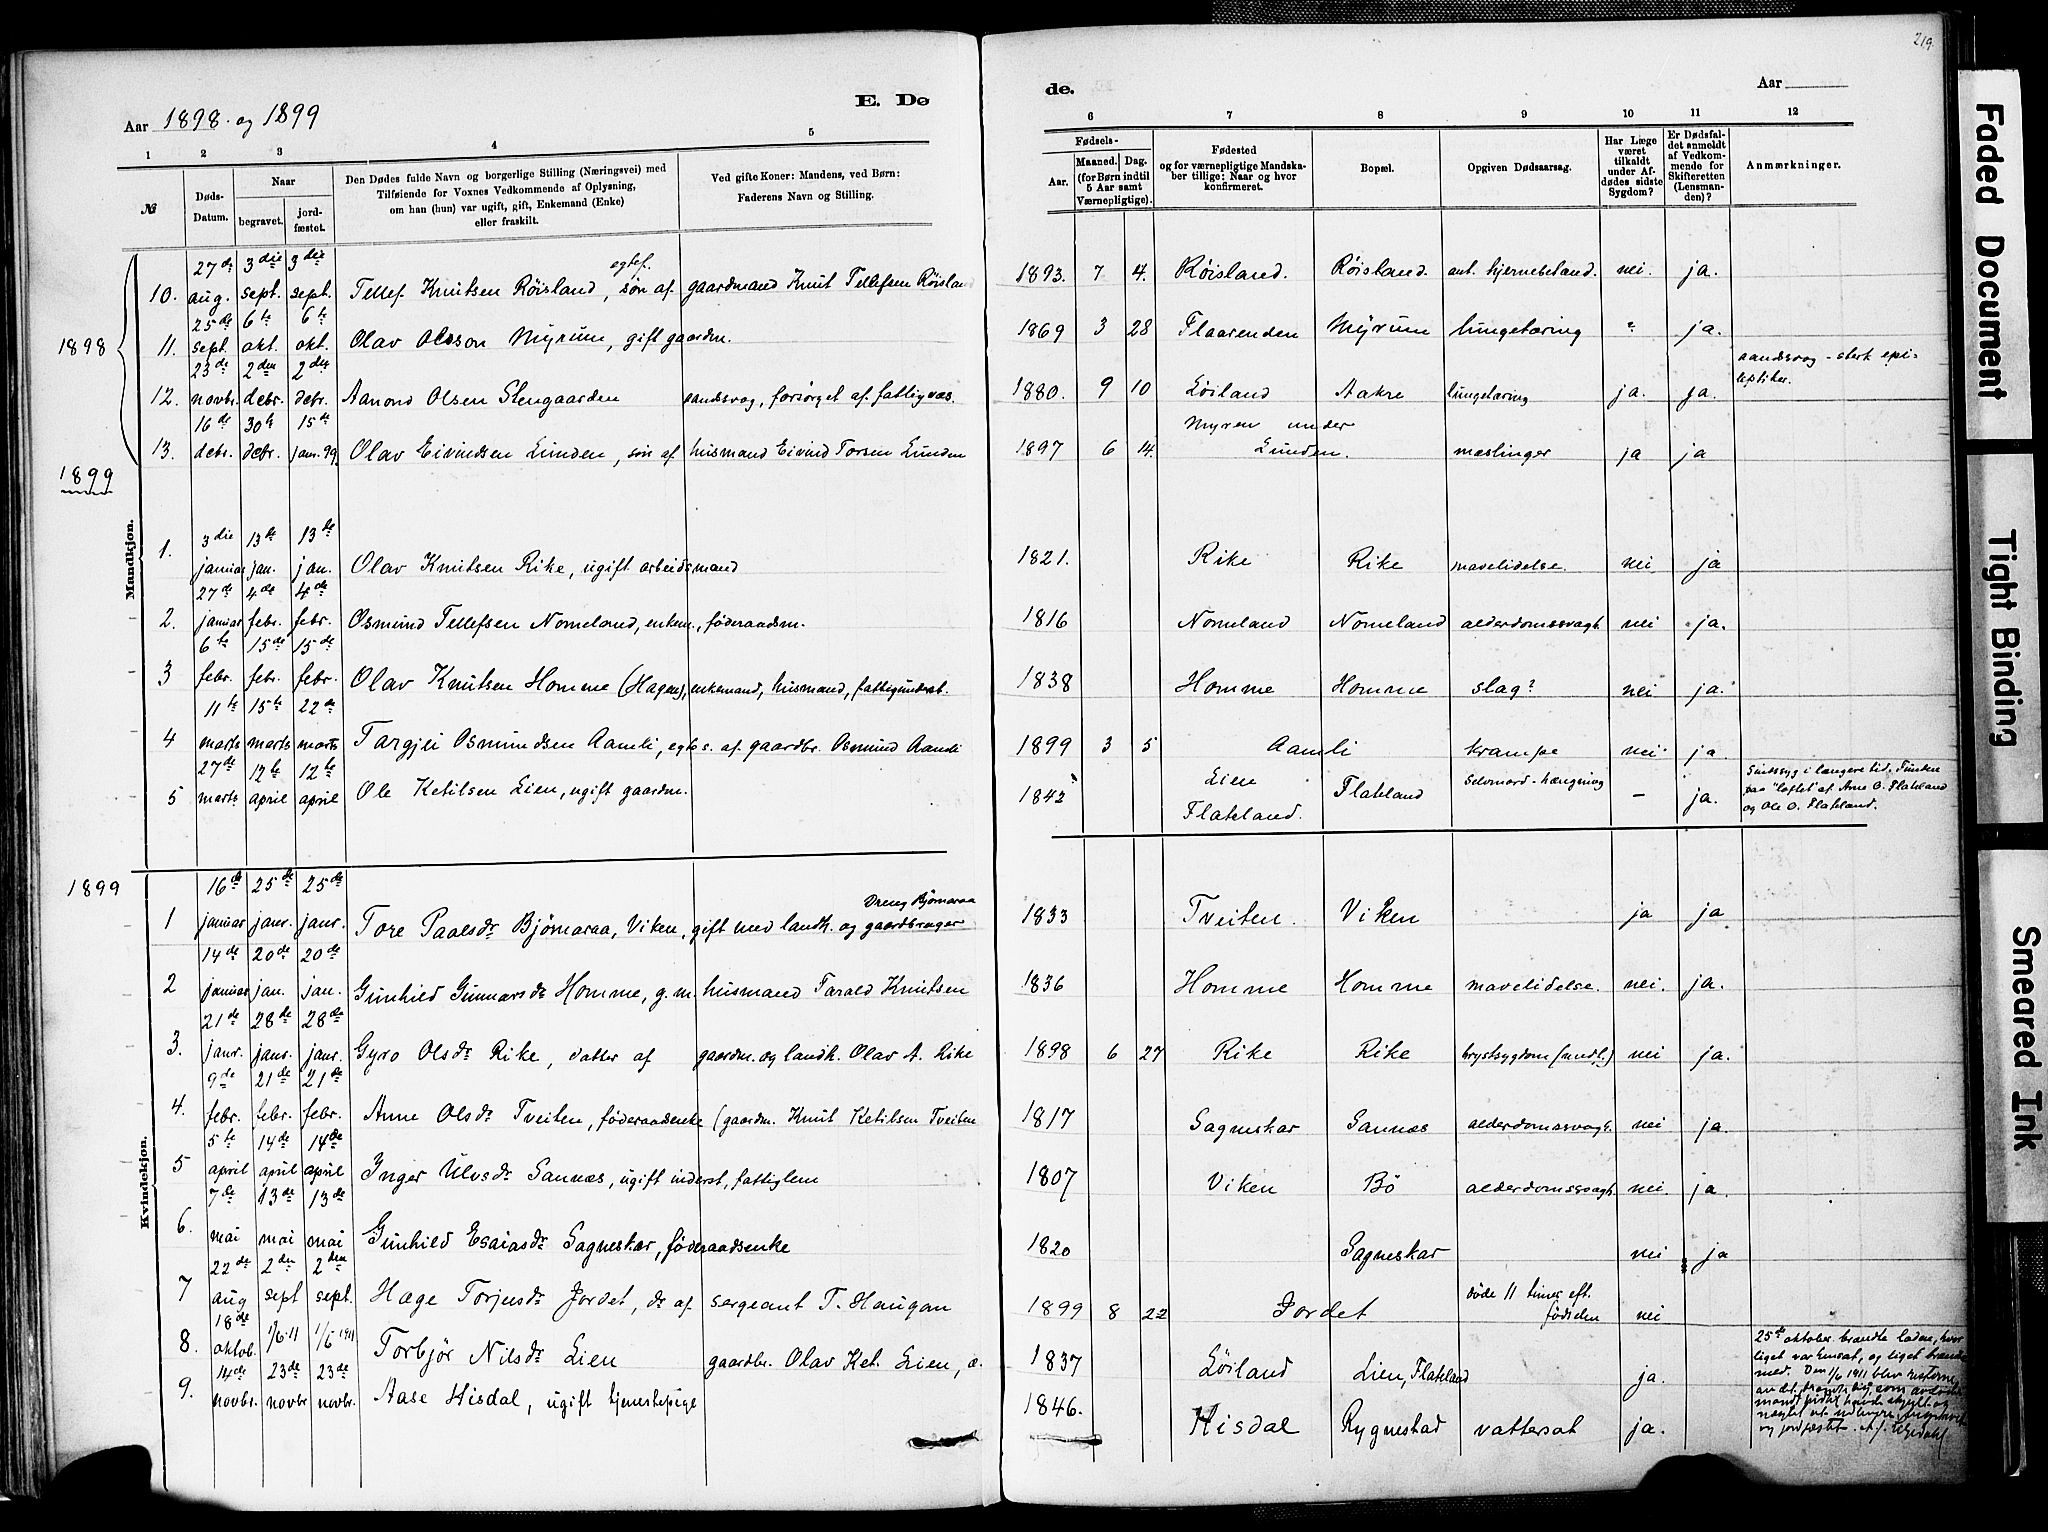 219.
E. Dø
de.
Aar 1898 og 1899
Aar
1 2 3 4 5
6 7 8 9 10 11 12
№
Døds-Datum.
Naar
begravet.
jord-fæstet.
Den Dødes fulde Navn og borgerlige Stilling (Næringsvei) med
Tilføiende for Voxnes Vedkommende af Oplysning,
om han (hun) var ugift, gift, Enkemand (Enke)
eller fraskilt.
Ved gifte Koner: Mandens, ved Børn:
Faderens Navn og Stilling.
Fødsels-
Aar.
Maaned. Dag.
(for Børn indtil
5 Aar samt
Værnepligtige).
Fødested
og for værnepligtige Mandska-
ber tillige: Naar og hvor
konfirmeret.
Bopæl.
Opgiven Dødsaarsag.
Har Læge
været
tilkaldt
under Af-
dødes sidste
Sygdom?
Er Dødsfal-
det anmeldt
af Vedkom-
mende for
Skifteretten
(Lensman-
den)?
Anmærkninger.
1898
Mandkjøn.
10. 27de aug. 3die sept. 3die sept. Tellef Knutsen Røisland, egtef. søn af gaardmand Knut Tellefsen Røisland 1893. 7 4. Røisland. Røisland. ant. hjernebetænd. nei. ja.
11. 25de sept. 6te okt. 6te okt. Olav Olsson Myrum, gift gaardm. 1869 3 28 Flaarenden Myrum lungetæring " ja.
12. 23de novbr. 2den debr. 2den debr. Aanond Olsen Stengaarden aandsvag, forsørget af fattigvæs. 1880. 9 10 Løiland Aakre lungetæring ja. ja. aandsvag - sterk epi-
leptiker.
13. 16de debr. 30te debr. 15de janr. 99. Olav Eivindsen Lunden, søn af husmand Eivind Torsen Lunden 1897 6 14. Myren under
Lunden. mæslinger ja ja
1899
1. 3die januar 13de jan. 13de jan. Olav Knutsen Rike, ugift arbeidsmand 1821. Rike Rike mavelidelse. nei. ja
2. 27de januar 4de febr. 4de febr. Osmund Tellefsen Nomeland, enkem., føderaadsm. 1816 Nomeland Nomeland alderdomssvagh. nei ja.
3 6te febr. 15de febr. 15de febr. Olav Knutsen Homme (Hagen), enkemand, husmand, fattigunderst. 1838 Homme Homme slag? nei ja.
4 11te marts 15te marts 22de marts Targjei Osmundsen Aamli, egte s. af gaardbr. Osmund Aamli 1899 3 5 Aamli krampe nei ja.
5 27de marts 12te april 12te april Ole Ketilsen Lien, ugift gaardm. 1842 Lien
Flateland. Flateland Selvmord - hængning - ja. Sindssyg i længere tid. Funden
paa "loftet" af Arne O. Flateland
og Ole O. Flateland.
1899
Kvindekjøn.
1 16de januar 25de janr. 25de janr. Tore Paalsdr Bjørnaraa, Viken, gift med landh. og gaardbruger Dreng Bjørnaraa 1833 Tveiten. Viken ja ja
2 14de januar 20de jan. 20de jan. Gunhild Gunnarsdr Homme, g. m. husmand Tarald Knutsen 1836 Homme Homme mavelidelse. nei. ja.
3. 21de janr. 28de janr. 28de janr. Gyro Olsdr Rike, datter af gaardm. og landh. Olav A. Rike 1898 6 27 Rike Rike brystsygdom (medf.) nei ja.
4. 9de febr. 21de febr. 21de febr. Anne Olsdr Tveiten, føderaadsenke (gaardm. Knut Ketilsen Tveiten 1817 Sagneskar Sannæs alderdomssvagh. nei ja.
5 5te april 14de april 14de april Inger Ulvsdr Sannæs, ugift inderst, fattiglem 1807 Viken Bø alderdomssvagh. nei. ja.
6. 7de mai 13de mai 13de mai Gunhild Esaiasdr Sagneskar, føderaadsenke 1820 Sagneskar nei ja
7 22de aug 2den sept 2den sept. Hæge Torjusdr Jordet, dr af sergeant T. Haugan 1899 8 22 Jordet døde 11 timer eft.
fødselen nei
8. 18de oktob. 1/6.11 1/6 1911 Torbjør Nilsdr Lien gaardbr. Olav Ket. Lien, 1837 Løiland Lien, Flateland ja. 25de oktober brændte laden, hvor
liget var hensat, og liget brændte
med. Den 1/6 1911 blev resterne
9. 14de novbr. 23de novbr 23de novbr. Aase Hisdal, ugift tjenestepige 1846. Hisdal Rygnestad vattersot ja.
og jordfæstet.
Faded Document
Tight Binding
Smeared Ink